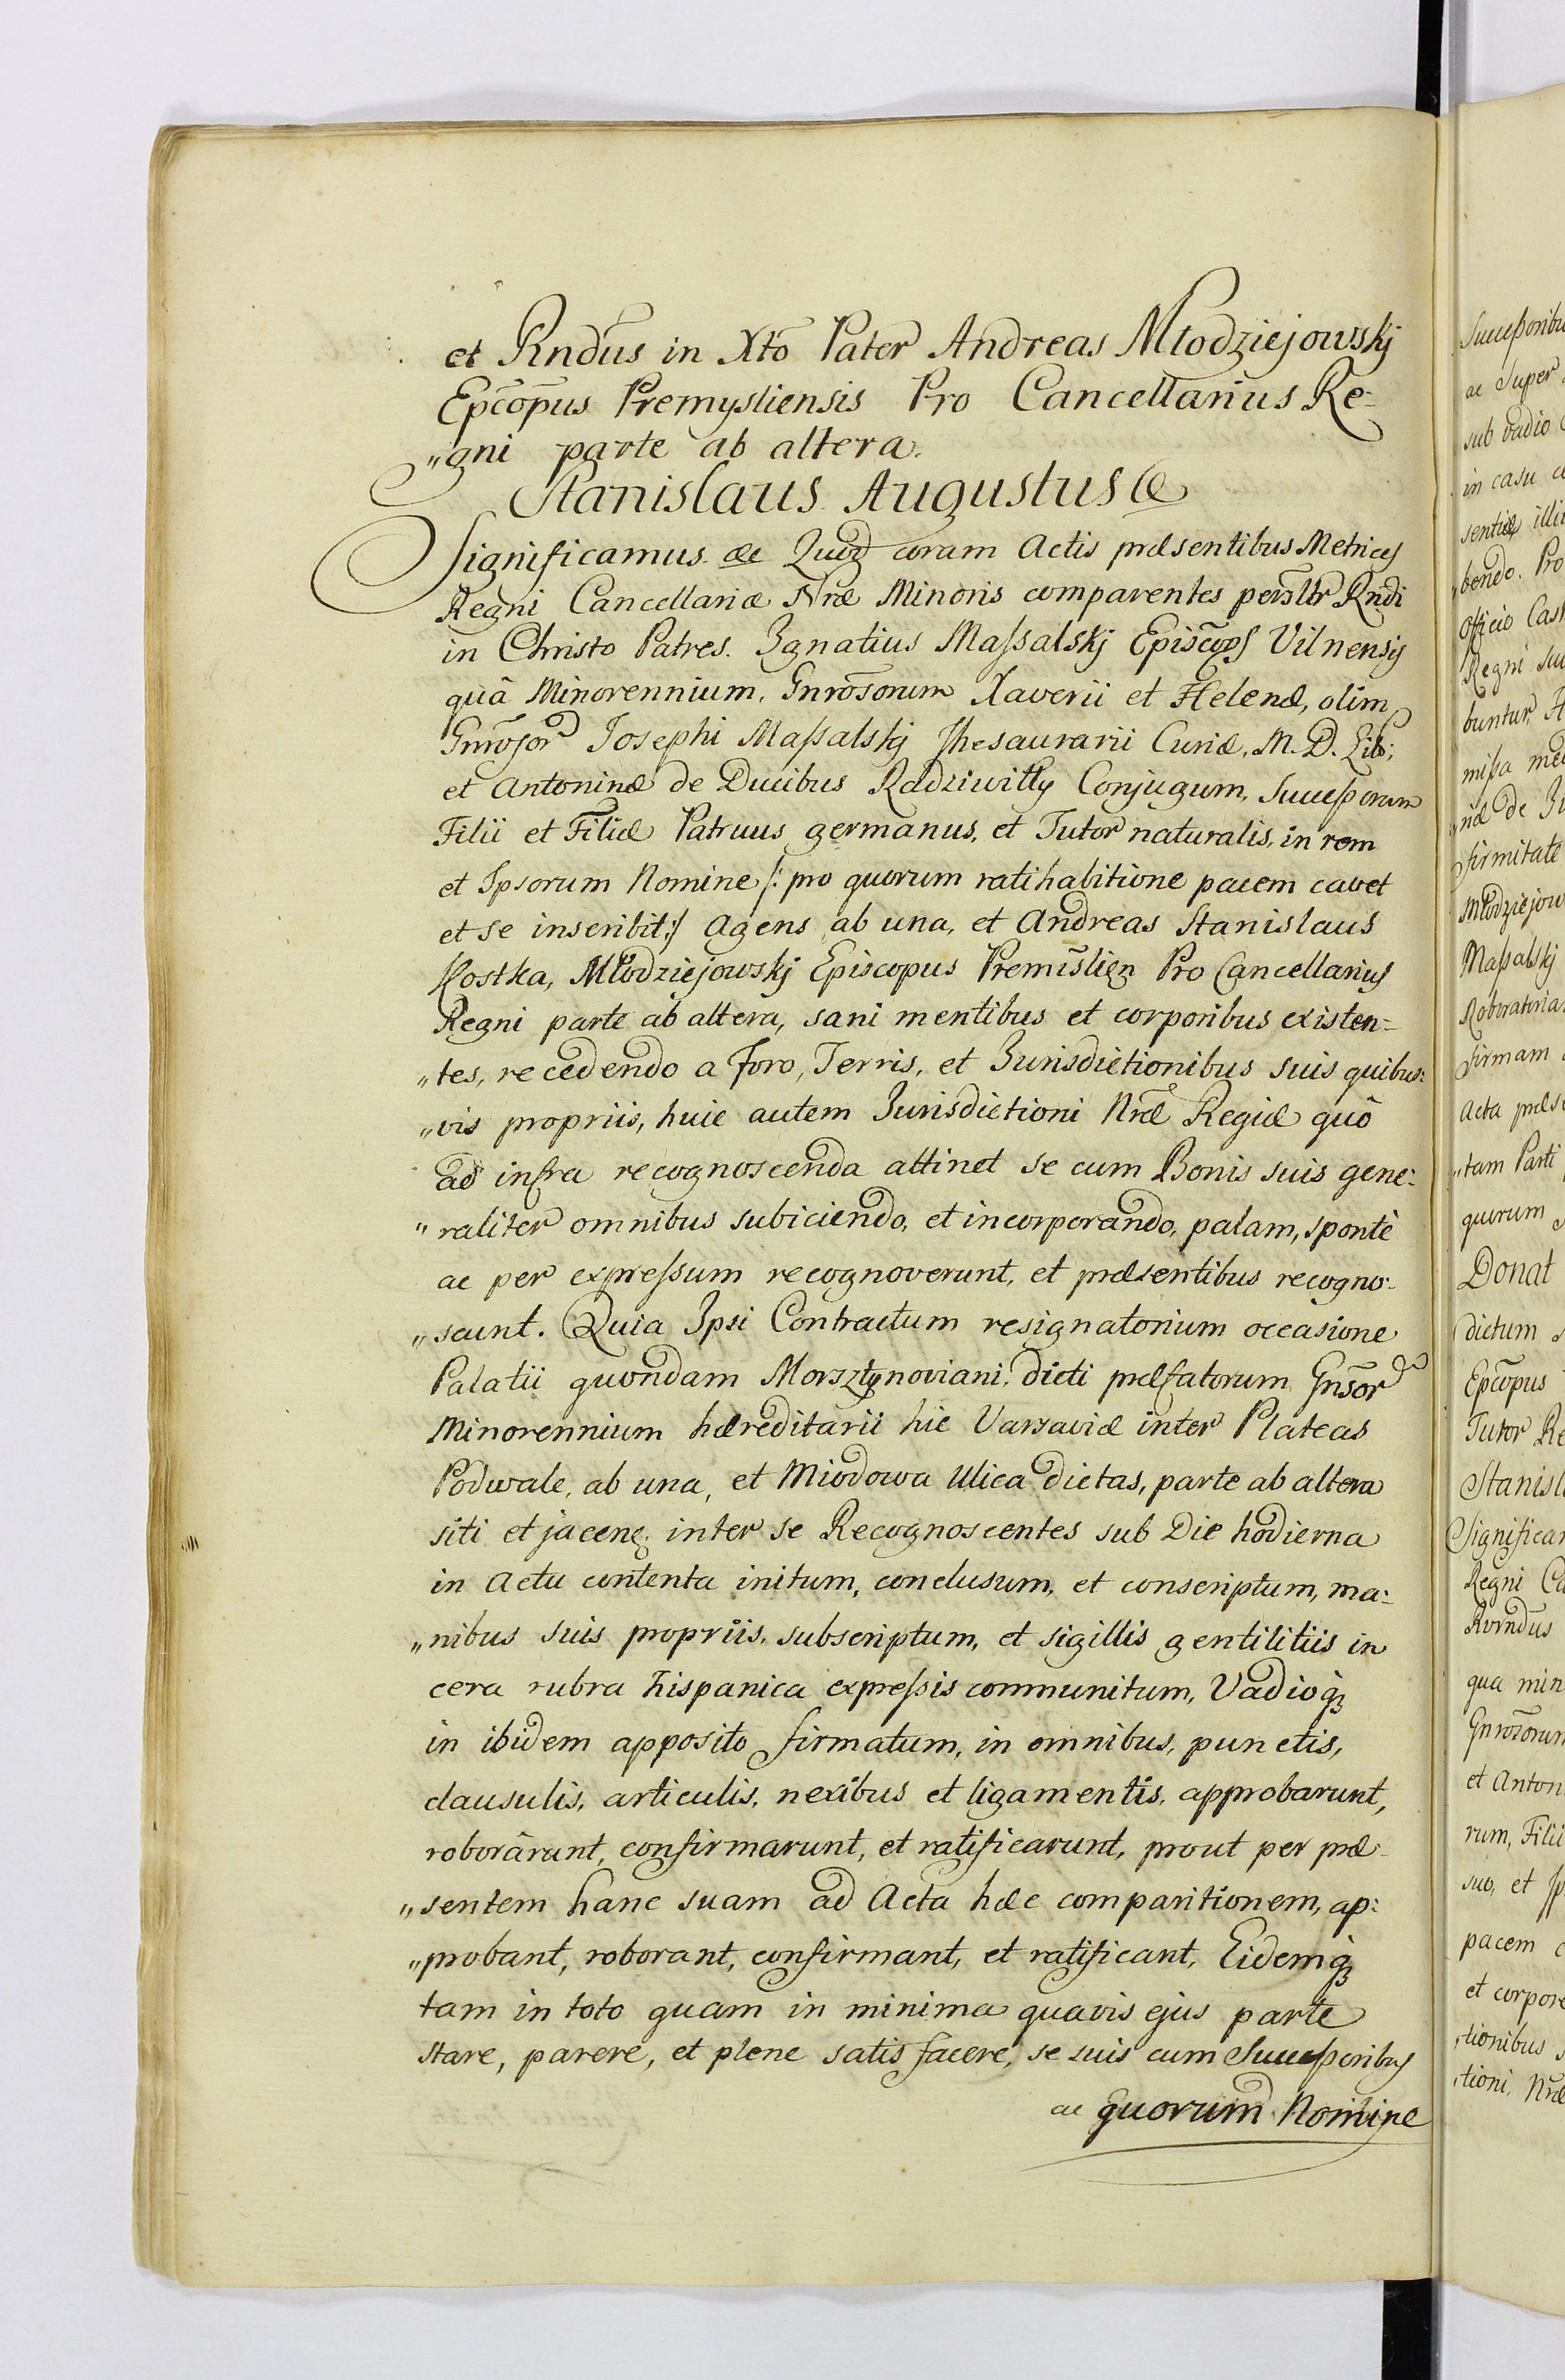 et Rndus in Xto Pater Andreas Młodziejowskj
Epcopus Premysliensis Pro Cancellarius Re=
"gni parte ab altera.
Stanislaus Augustus &
Significamus &c Quod coram Actis præsentibus Metrices
Regni Cancellariæ Nræ Minoris comparentes persltr Rndi
in Christo Patres. Ignatius Massalskj Episcops Vilnensis
quâ Minorennium, Gnrosorum Xaverii et Helenæ, olim
Gnrosor Josephi Massalskj Thesaurarii Curiæ, M. D. Lit:
et Antoninæ de Ducibus Radziwiłły Conjugum, Successorum
Filii et Filiæ Patruus germanus, et Tutor naturalis, in rem
et Ipsorum Nomine /: pro quorum ratihabitione pacem cavet
et se inscribit :/ Agens ab una, et Andreas Stanislaus
Kostka, Młodziejowskj Episcopus Premislien Pro Cancellarius
Regni parte ab altera, sani mentibus et corporibus existen=
"tes, recedendo a Foro, Terris, et Jurisdictionibus suis quibus:
"vis propriis, huic autem Jurisdictioni Nræ Regiæ quô
ad infra recognoscenda attinet se cum Bonis suis gene:
"raliter omnibus subiciendo, et incorporando, palam, spontè
ac per expressum recognoverunt, et præsentibus recogno-
"scunt. Quia Ipsi Contractum resignatorium occasione
Palatii quondam Morsztynoviani, dicti præfatorum Gnsor
Minorennium hæreditarii hic Varsaviæ inter Plateas
Podwale, ab una, et Miodowa Ulica dictas, parte ab altera
siti et jacenę inter se Recognoscentes sub Die hodierna
in Actu contenta initum, conclusum, et conscriptum, ma:
"nibus suis propriis, subscriptum, et sigillis gentilitiis in
cera rubra hispanica expressis communitum, Vadioq̀ꝫ
in ibidem apposito firmatum, in omnibus, punctis,
clausulis, articulis, nexibus et ligamentis, approbarunt,
roborârunt, confirmarunt, et ratificarunt, prout per præ-
"sentem hanc suam ad Acta hæc comparitionem, ap:
"probant, roborant, confirmant, et ratificant, Eidemq̀ꝫ
tam in toto quam in minima quavis ejus parte
stare, parere, et plene satis facere, se suis cum Successoribus
ac quorum Nomine
Successoribu
ac super
sub vadio
in casu
sentiæ
bendo. Pro
Officio Cast
Regni
buntur,
missa med
næ de
firmitate
Młodziejow
Massalskj
Roboratoria
firmam
Acta præs
"tam Parti
quorum
Donat
dictum
Epcopus
Tutor Re
Stanisl
Significa
Regni Ca
Rvrndus
qua min
Gnrosorum
et Anton
rum, Filii
suo, et Ip
pacem c
et corpore
tionibus s
tioni, Nræ